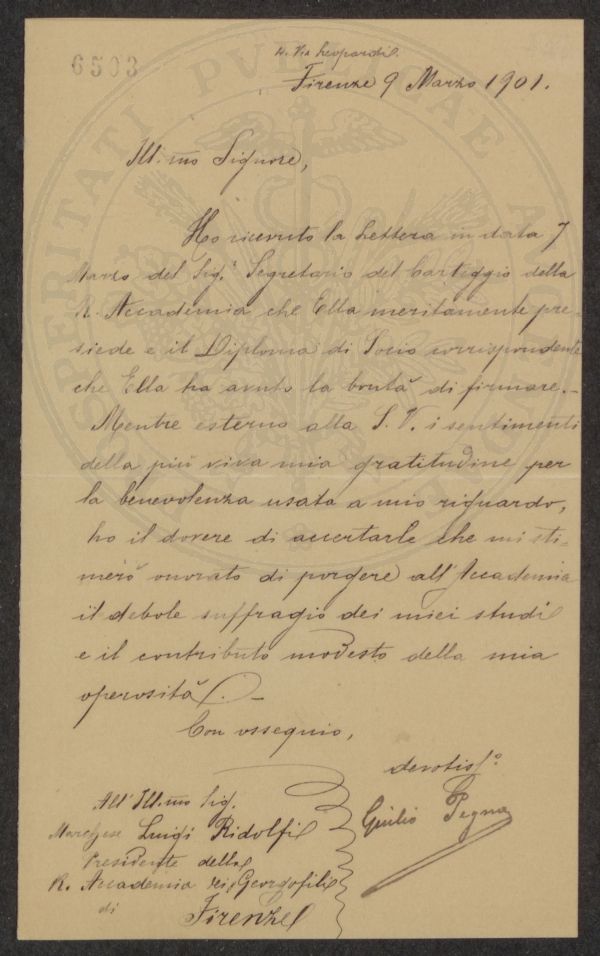 6503
4. Via Leopardi.
Firenze 9 Marzo 1901.
Ill.mo Signore,
Ho ricevuto la lettera in data 7
Marzo del Sig.r Segretario del Carteggio della
R. Accademia che Ella meritamente pre-
siede e il Diploma di Socio corrispondente
che Ella ha avuto la bontà di firmare.-
Mentre esterno alla S. V. i sentimenti
della più viva mia gratitudine per
la benevolenza usata a mio riguardo,
ho il dovere di accertarle che mi sti-
merò onorato di porgere all'Accademia
il debole suffragio dei miei studi
e il contributo modesto della mia
operosità. -
Con ossequio,
devotiss.o
Giulio Pegna
All'Ill.mo Sig.
Marchese Luigi Ridolfi
Presidente della
R. Accademia dei Georgofili
di Firenze
PROSPERITATI PVBLICAE AVGENDAE